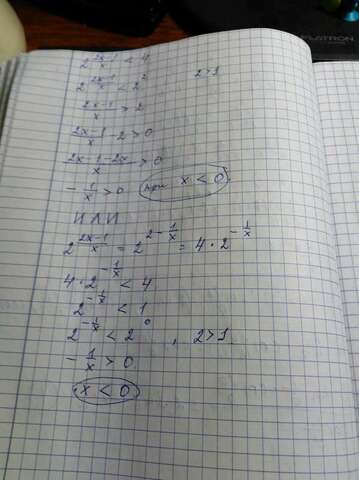 2^((2x-1)/x) < 4
2^((2x-1)/x) < 2^2 2>1
(2x-1)/x > 2
(2x-1)/x - 2 > 0
(2x-1-2x)/x > 0
-1/x > 0 при x < 0
ИЛИ
2^((2x-1)/x) = 2^(2-1/x) = 4·2^(-1/x)
4·2^(-1/x) < 4
2^(-1/x) < 1
2^(-1/x) < 2^0, 2>1
-1/x > 0
x < 0